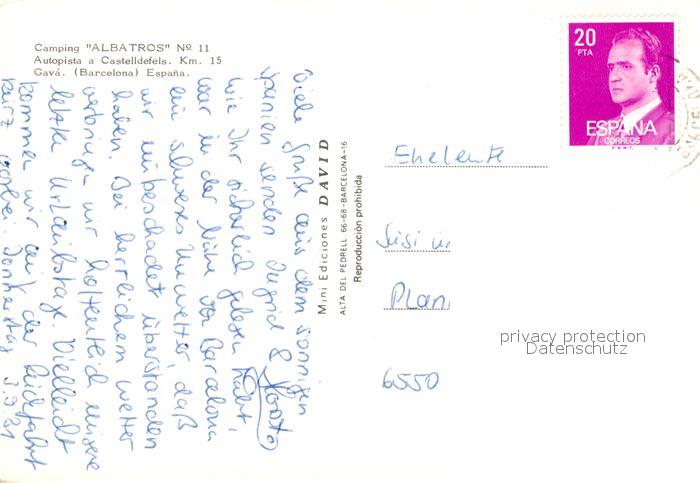 Camping "ALBATROS" Nº 11
Autopista a Castelldefels. Km. 15
Gavá. (Barcelona) España.
Viele Grüße aus dem sonnigen
Spanien senden Ingrid &
wie Ihr sicherlich gelesen habt,
war in der Nähe von Barcelona
ein schweres Unwetter, daß
wir unbeschadet überstanden
haben. Bei herrlichem Wetter
verbringen wir hoffentlich unsere
letzten Urlaubstage. Vielleicht
kommen wir auf der Rückfahrt
kurz vorbei. Donnerstag 3.9.81
Mini Ediciones DAVID
ALTA DEL PEDRELL 66-68-BARCELONA-16
Reproducción prohibida
20
PTA
ESPAÑA
CORREOS
F.N.M.T.
Eheleute
Susi u
Plan
6550
privacy protection
Datenschutz